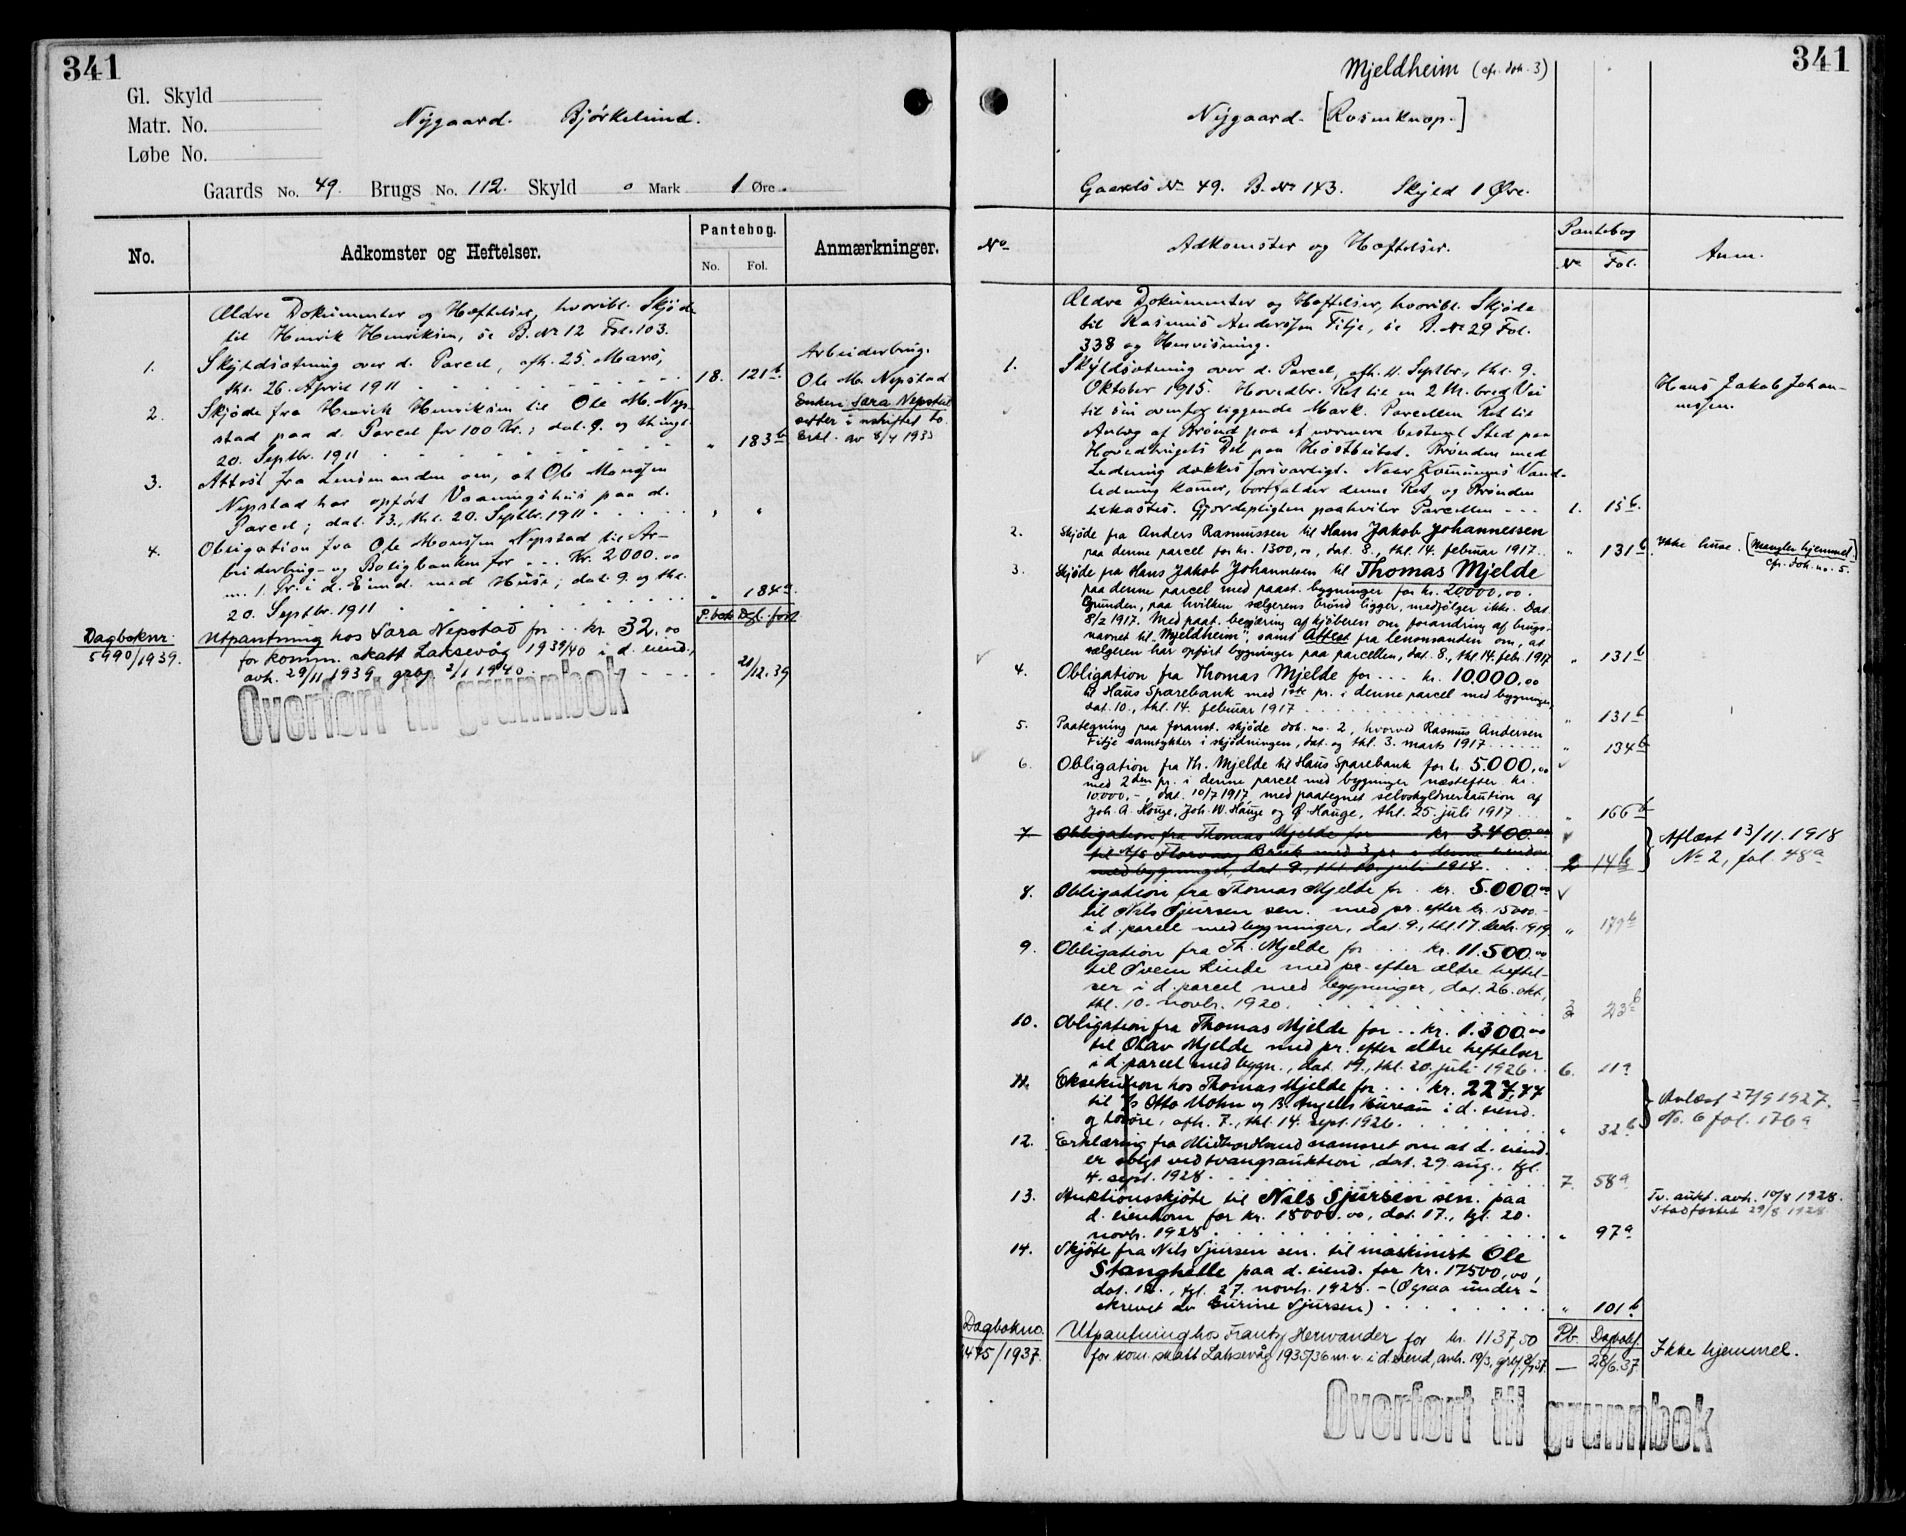 341
Gl. Skyld
Matr. No.
Løbe No.
Nygaard. Bjørkelund.
Gaards No. 49. Brugs No. 112. Skyld 0 Mark 1 Øre.
No.
Adkomster og Heftelser.
Pantebog.
No. Fol.
Anmærkninger.
Ældre Dokumenter og Hæftelser, hvoribl. Skjøde
til Henrik Henriksen, se B. No 12 Fol. 103.
1. Skyldsætning over d. Parcel, afh. 25. Mars,
thl. 26. April 1911 18. 121b
Arbeiderbrug.
Ole M. Nepstad
Enken Sara Nepstad
sitter i uskiftet bo
Erkl. av 8/4 1933
2. Skjøde fra Henrik Henriksen til Ole M. Nep-
stad paa d. Parcel for 100 Kr.; dat. 9. og thingl.
20. Septbr. 1911 " 183b
3. Attest fra Lensmanden om, at Ole Monsen
Nepstad har opført Vaaningshus paa d.
Parcel; dat. 13., thl. 20. Septbr. 1911 " "
4. Obligation fra Ole Monssen Nepstad til Ar-
beiderbrug- og Boligbanken for ... Kr. 2000.00
m. 1. Pr. i d. Eiend. med Huse; dat. 9. og thl.
20. Septbr. 1911 " 184a
P.bok Dgl. ført
Dagboknr. 5990/1939.
Utpantning hos Sara Nepstad for .. kr. 32.00
for komm. skatt Laksevåg 1939/40 i d. eiend.,
avh. 29/11 1939, grbg. 2/1 1940. 21/12.39
Overført til grunnbok
341
Mjeldheim (cfr. dok. 3)
Nygaard. [Rosenknop.]
Gaards No 49. B. No 143. Skyld 1 Øre.
No
Adkomster og Hæftelser.
Pantebog
No Fol.
Anm.
Ældre Dokumenter og Hæftelser, hvoribl. Skjøde
til Rasmus Anderssen Fitje, se B. No 29 Fol.
338 og Henvisning.
1. Skyldsætning over d. Parcel, afh. 11. Septbr., thl. 9.
Oktober 1915. Hovedbr. Ret til en 2 M. bred Vei
til sin ovenfor liggende Mark. Parcellen Ret til
Anlæg af Brønd paa et nærmere bestemt Sted paa
Hovedbrugets Del paa Høstbeitet. Brønden med
Ledning dækkes forsvarligt. Naar Kommunens Vand-
ledning kommer, bortfalder denne Ret og Brønden
tilkastes. Gjerdepligten paahviler Parcellen --- 1. 15b.
Hans Jakob Johan-
nessen.
2. Skjøde fra Anders Rasmussen til Hans Jakob Johannessen
paa denne parcel for kr. 1300,00, dat. 8., thl. 14. februar 1917. " 131b
Ikke huse. [Mangler hjemmel.] cfr. dok. no. 5.
3. Skjøde fra Hans Jakob Johannessen til Thomas Mjelde
paa denne parcel med paast. bygninger for kr. 20000,00.
Grunden, paa hvilken sælgerens brønd ligger, medfølger ikke. Dat.
8/2 1917. Med paat. begjæring af kjøberen om forandring af brugs-
navnet til "Mjeldheim", samt Attest fra lensmanden om, at
sælgeren har opført bygninger paa parcellen, dat. 8., thl. 14. febr. 1917 " 131b
4. Obligation fra Thomas Mjelde for ... kr. 10.000,00
til Haus Sparebank med 1ste pr. i denne parcel med bygninger,
dat. 10., thl. 14. februar 1917 " 131b
5. Paategning paa foranst. skjøde dok. no. 2, hvorved Rasmus Andersen
Fitje samtykker i skjødningen, dat. og thl. 3. marts 1917 " 134b
6. Obligation fra Th. Mjelde til Haus Sparebank for kr. 5.000,00
med 2den pr. i denne parcel med bygninger næstefter kr.
10.000,-, dat. 10/7 1917, med paategnet selvskyldnerkaution af
Joh. A. Hauge, Joh. W. Hauge og Ø. Hauge, thl. 25. juli 1917 " 166b
7. Obligation fra Thomas Mjelde for kr. 3.400.00
til A/S Florvaag Bruk med 3 pr. i denne eiendom
med bygninger, dat. 9., thl. 10. juli 1918. 2 14b
Aflæst 13/11.1918
No 2, fol. 48a
8. Obligation fra Thomas Mjelde for . kr. 5.000.00
til Nils Sjursen sen. med pr. efter kr. 15000.-
i d. parcel med bygninger, dat. 9., thl. 17. decbr. 1919 " 179b
9. Obligation fra Th. Mjelde for ... kr. 11.500.00
til Svein Linde med pr. efter ældre heftel-
ser i d. parcel med bygninger, dat. 26. okt.,
thl. 10. novbr. 1920. 3 23b
10. Obligation fra Thomas Mjelde for .. kr. 1.300.00
til Olav Mjelde med pr. efter ældre heftelser
i d. parcel med bygn., dat. 19., thl. 20. juli 1926 .. 6. 11a
11. Eksekution hos Thomas Mjelde for ... kr. 227,47
til Otto Mohn og B. Angells Bureau i d. eiend.
og løsøre, afh. 7., thl. 14. sept. 1926. " 32b
Avlæst 27/9 1927.
No. 6 fol. 176a
12. Erklæring fra Midhordland namsret om at d. eiend.
er solgt ved tvangsauktion, dat. 29. aug., tgl.
4. sept. 1928. 7. 58a
13. Auktionsskjøte til Nils Sjursen sen. paa
d. eiendom for kr. 18000.00, dat. 17., tgl. 20.
novbr. 1928 " 97a
Tv. aukt. avh. 10/8 1928.
Stadfæstet 29/8 1928.
14. Skjøte fra Nils Sjursen sen. til maskinist Ole
Stanghelle paa d. eiend. for kr. 17500,00,
dat. 12., tgl. 27. novbr. 1928. - (Ogsaa under-
skrevet av Gurine Sjursen) " 101b
Dagbokno. 1475/1937.
Pb. Dagbokf.
Utpantning hos Frantz Herwander for kr. 1137,50
for kom. skatt Laksevåg 1935/36 m.v. i d. eiend., avh. 19/3, — 28/6.37
Ikke hjemmel.
Overført til grunnbok